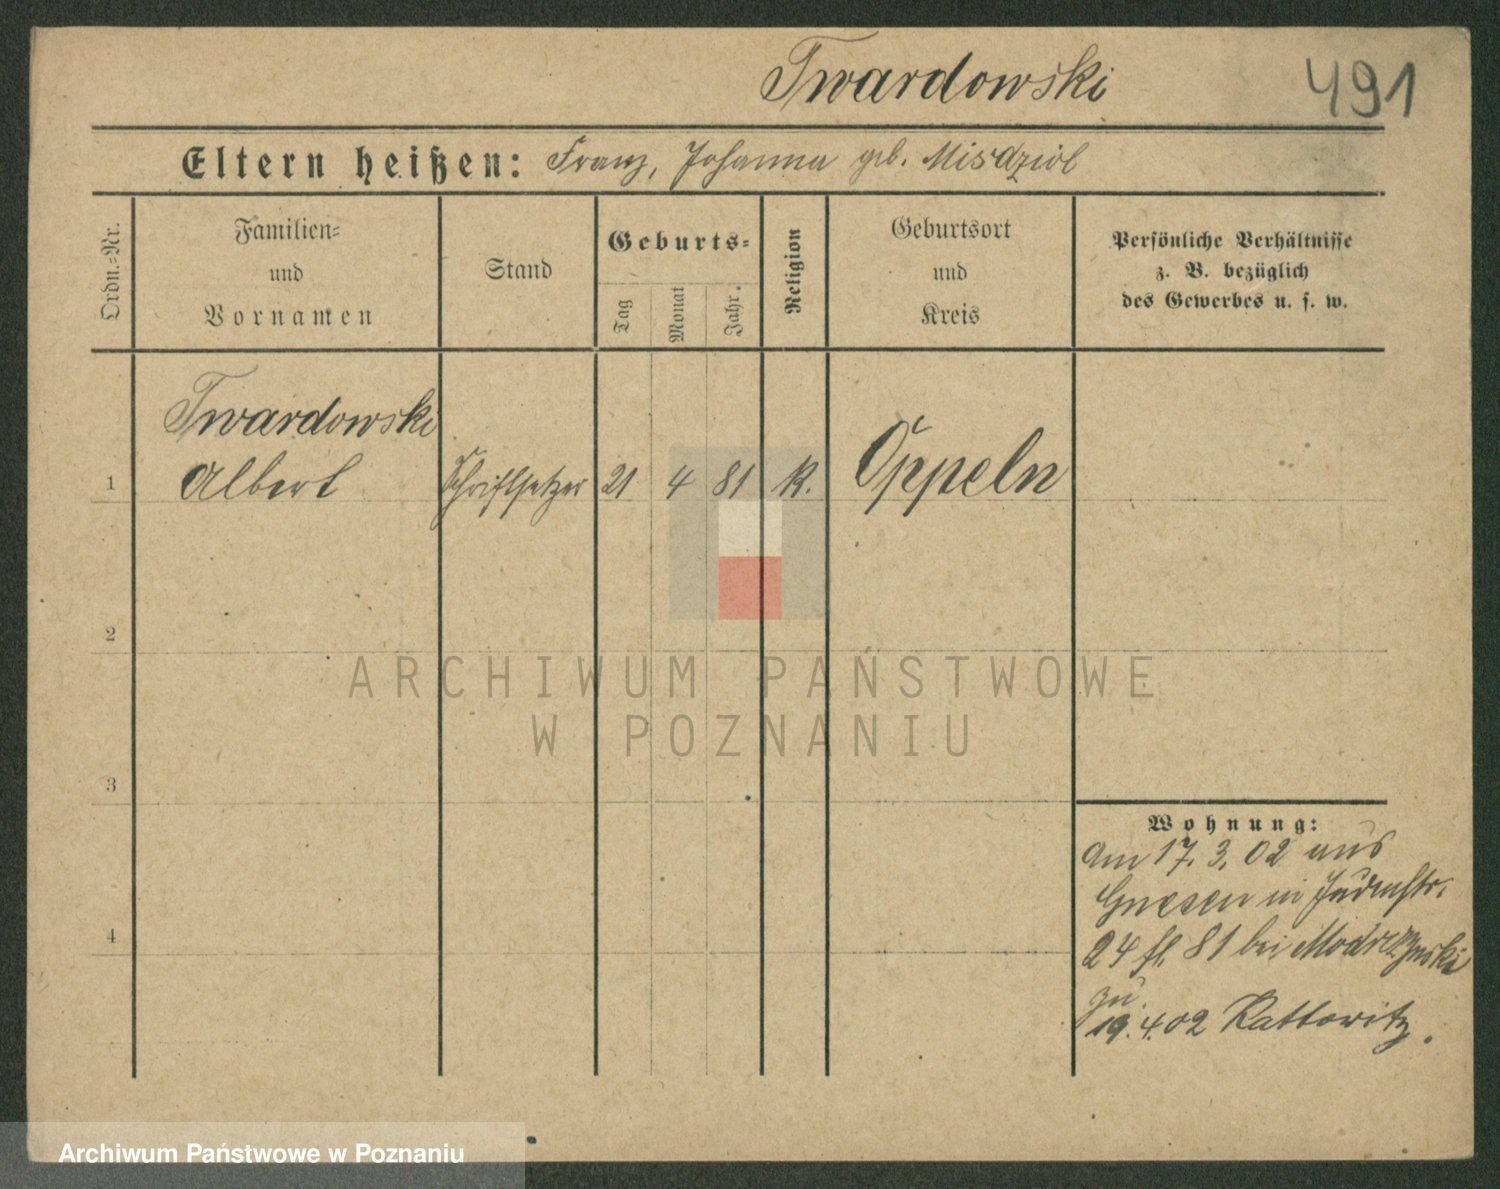 Twardowski
491
Eltern heißen: Franz, Johanna geb. Misdziol
Ordn.-Nr.
Familien-
und
Vornamen
Stand
Geburts-
Tag
Monat
Jahr.
Religion
Geburtsort
und
Kreis
Persönliche Verhältnisse
z. B. bezüglich
des Gewerbes u. s. w.
Twardowski
1 Albert Schriftsetzer 21 4 81 k. Oppeln
2
3
4
Wohnung:
Am 17. 3. 02 aus
Gnesen in Judenstr.
24 fl. 81 bei
zu.
19. 4. 02 Kattowitz.
ARCHIWUM PAŃSTWOWE
W POZNANIU
Archiwum Państwowe w Poznaniu